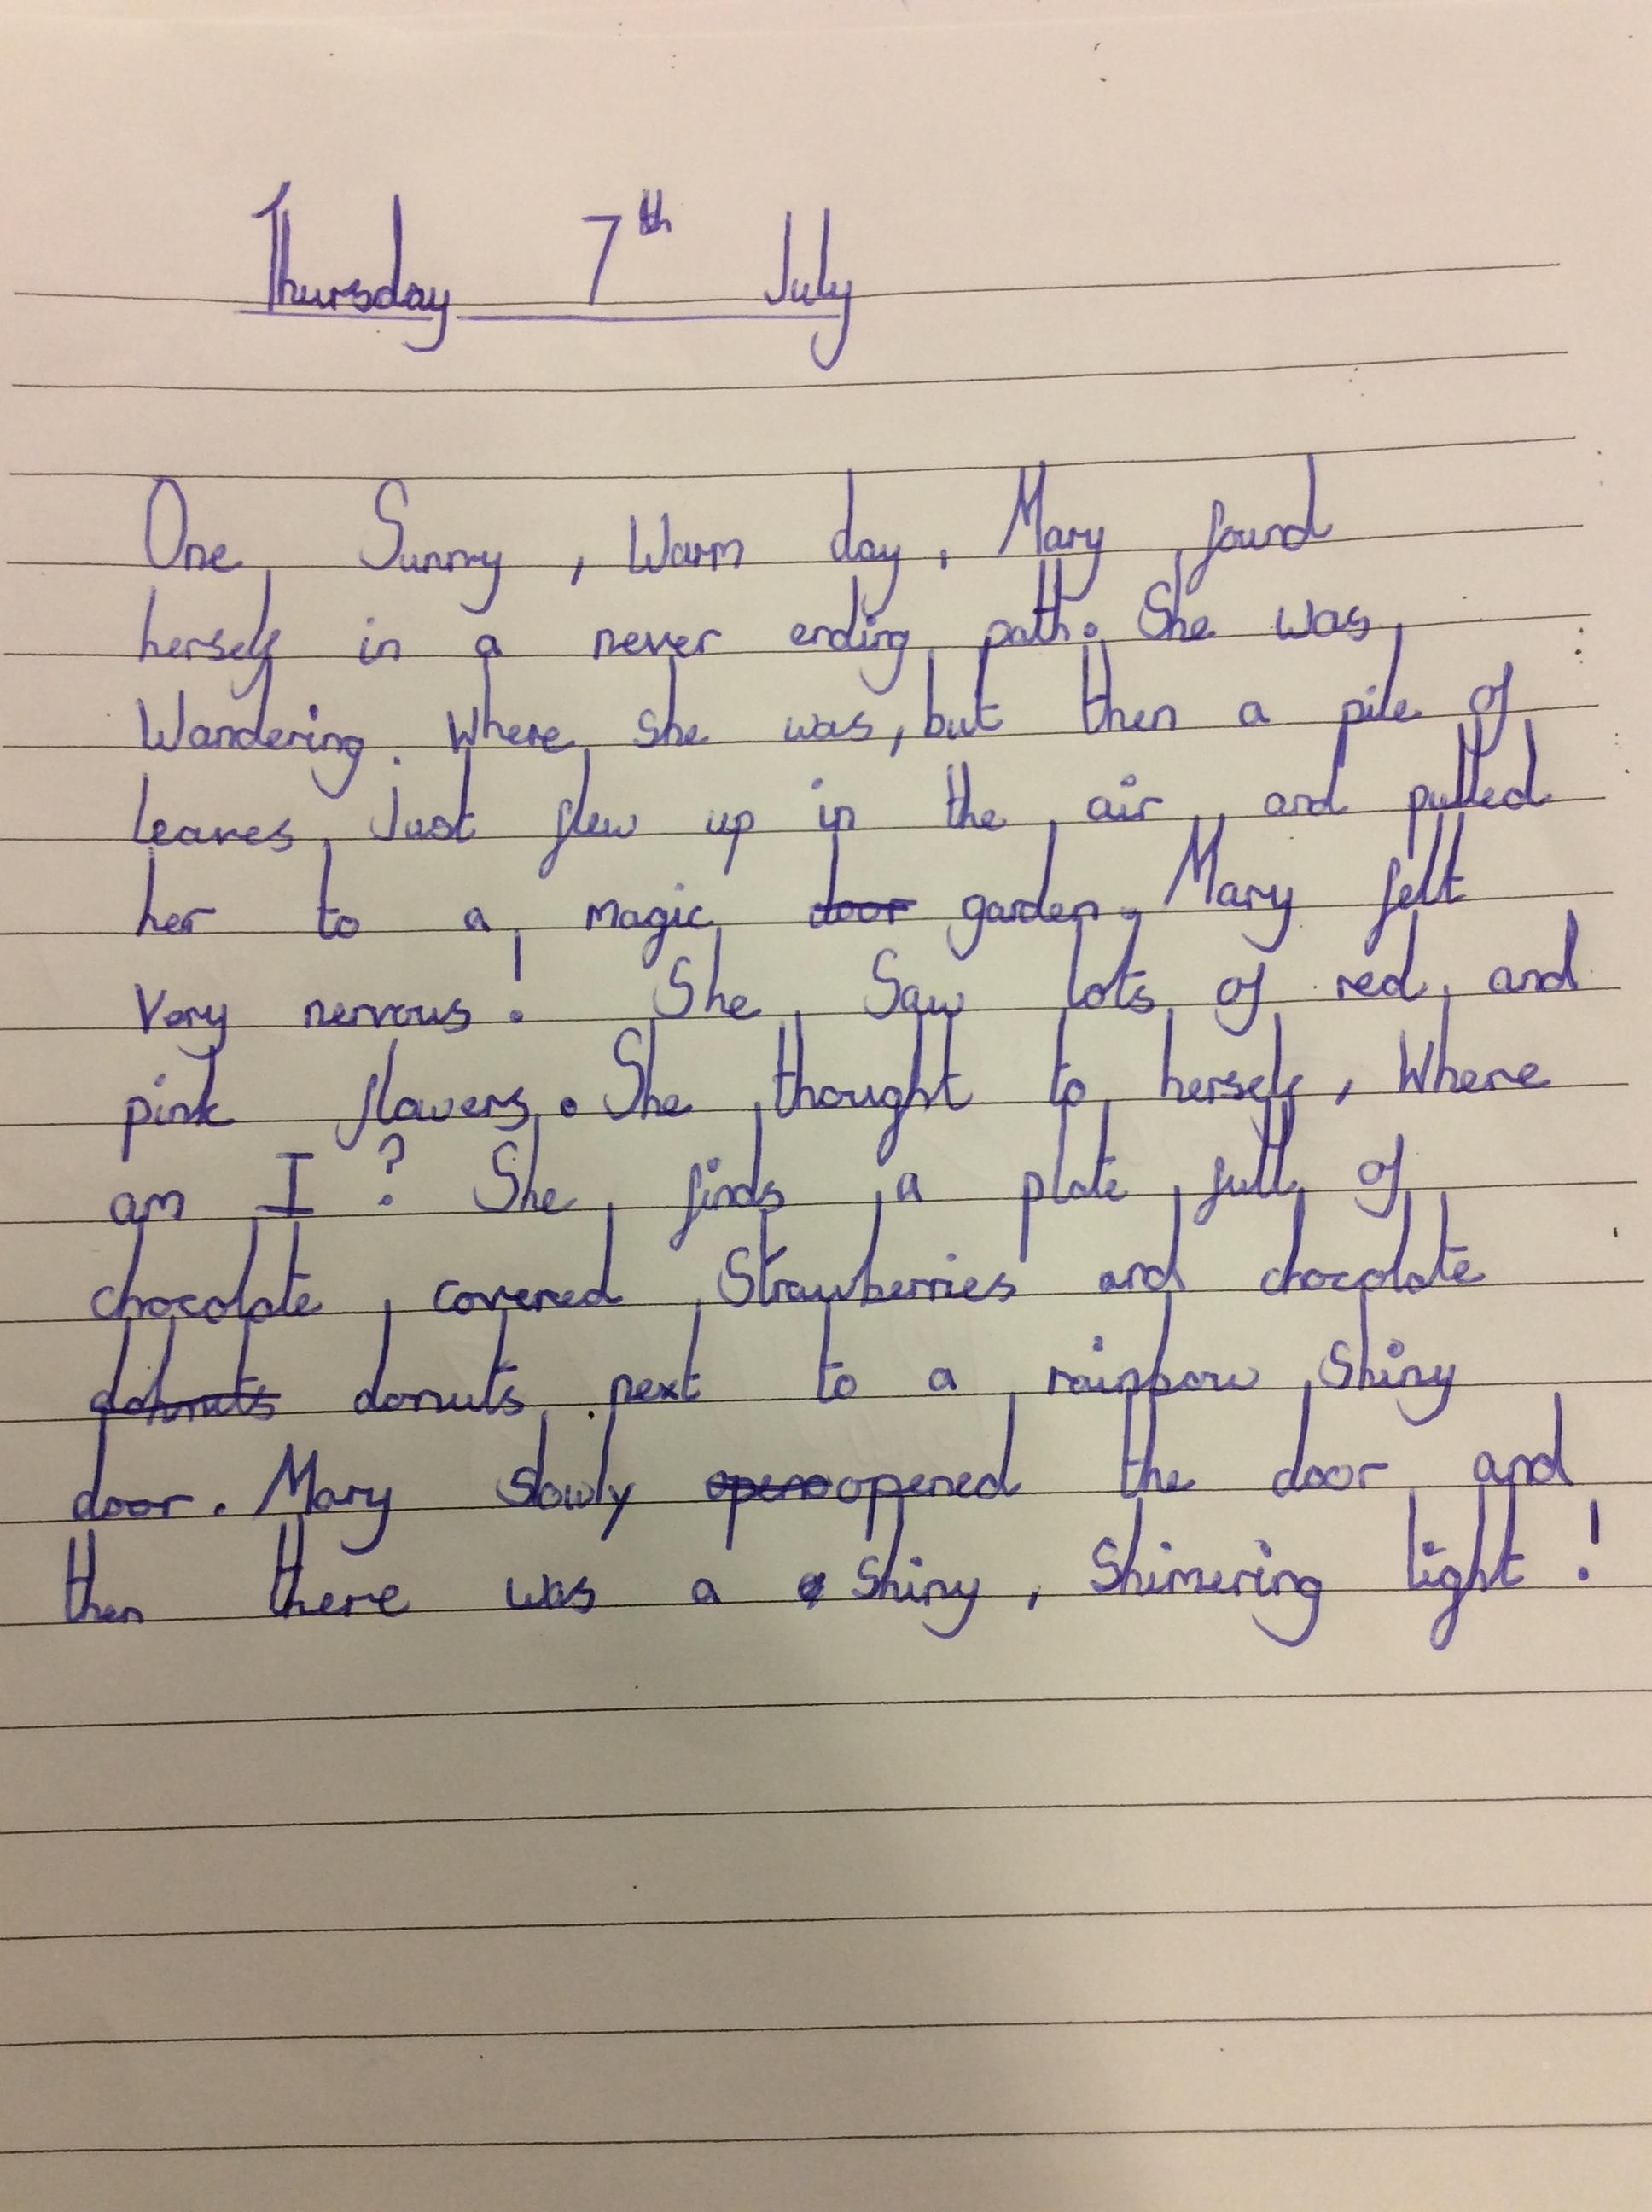 Thursday 7th July
One Sunny, Warm day, Mary found
herself in a never ending path. She was
Wandering. Where she was, but then a pile of
leaves Just flew up in the air and pulled
her to a magic door garden. Mary felt
Very nervous! She Saw lots of red and
pink flowers. She thought to herself, Where
am I? She finds a plate full of
chocolate covered Strawberries and chocolate
donuts next to a rainbow Shiny
door. Mary slowly open opened the door and
then there was a Shiny, Shimering light!